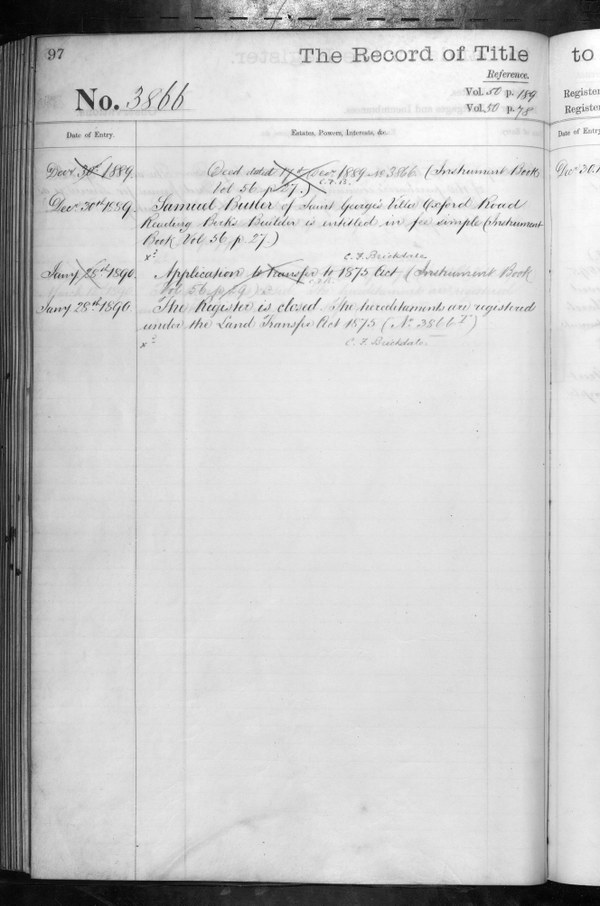 97
The Record of Title
to
Reference.
No. 3866
Vol. 50 p. 189
Vol. 50 p. 78
Register
Register
Date of Entry.
Estates, Powers, Interests, &c.
Date of Entry
Decr 30th 1889.
Deed dated 17th Decr 1889 No 3866 (Instrument Book
Vol 56 p 27.)
Decr 30th 1889.
Samuel Butler of Saint George's Villa Oxford Road
Reading Berks Builder is entitled in fee simple (Instrument
Book Vol 56 p 27.)
C. F. Brickdale
Jany 28th 1890.
Application to transfer to 1875 Act (Instrument Book
Vol 56 p 29
Jany 28th 1890
The Register is closed. The hereditaments are registered
under the Land Transfer Act 1875 (No 3866
C. F. Brickdale.
Decr 30